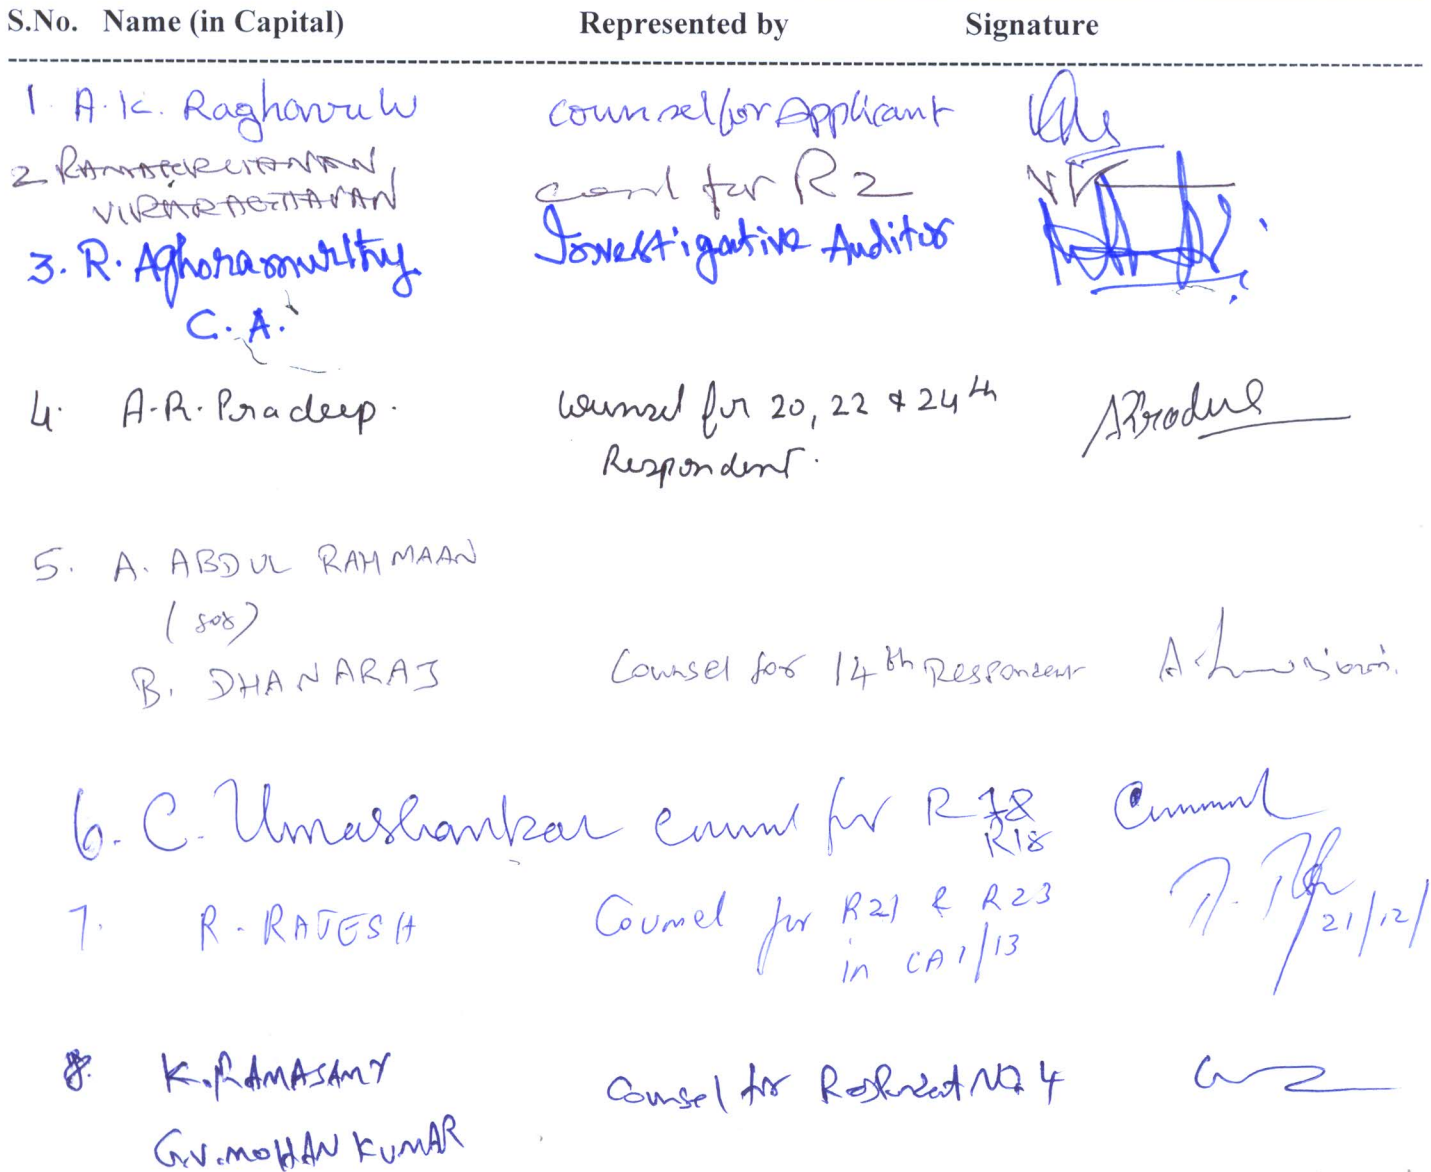 S.No. Name (in Capital) Represented by Signature
1. A.K. Raghavulu counsel for Applicant
2 VIRARAGHAVAN for R2
3. R. Aghoramurthy Investigative Auditor
C.A.
4. A.R. Pradeep. Counsel for 20, 22 & 24th
Respondent.
5. A. ABDUL RAHMAAN
(for)
B. DHANARAJ Counsel for 14th Respondent
6. C. Umashankar counsel for R
R18
7. R. RAJESH Counsel for R21 & R23
in CA 1/13 21/12/
8. K. RAMASAMY Counsel for No 4
G.V. MOHAN KUMAR